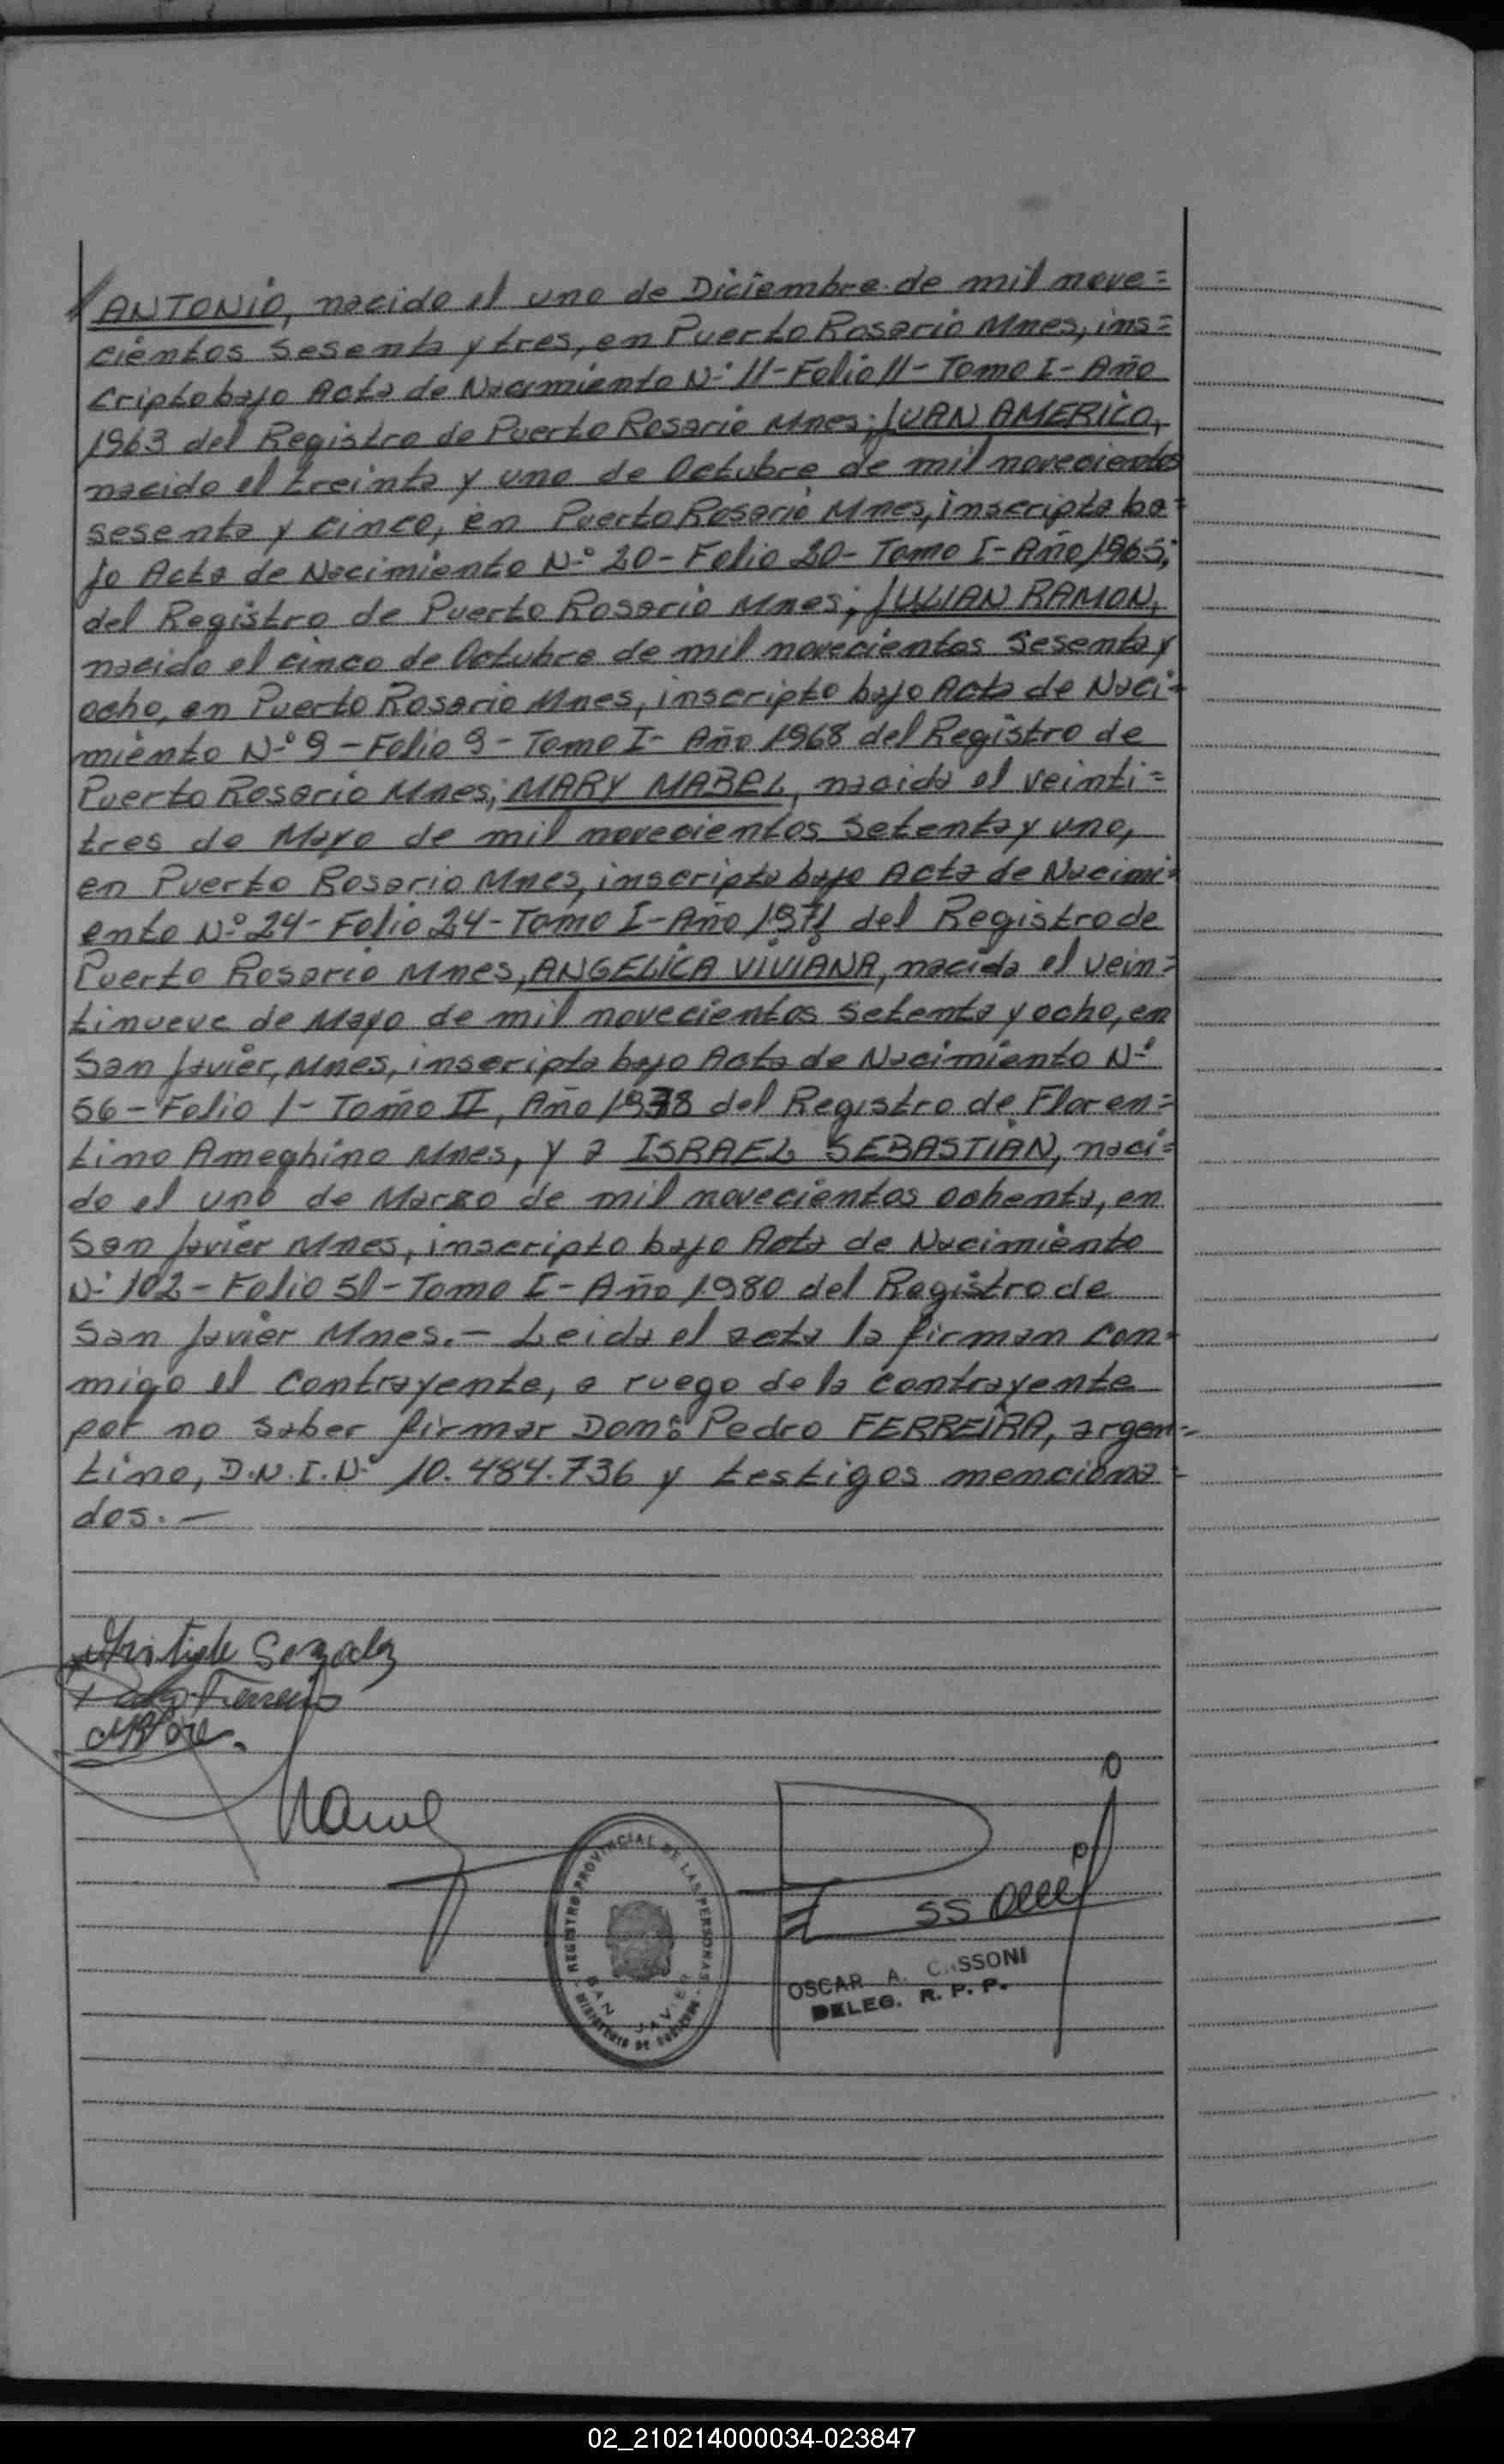 ANTONIO, nacido el uno de Diciembre de mil nove=
cientos sesenta y tres, en Puerto Rosario Mnes, ins=
cripto bajo Acta de Nacimiento N° 11 - Folio 11 - Tomo I - Año
1963 del Registro de Puerto Rosario Mnes; JUAN AMERICO,
nacido el treinta y uno de Octubre de mil novecientos
sesenta y cinco, en Puerto Rosario Mnes, inscripto ba=
jo Acta de Nacimiento N° 20 - Folio 20 - Tomo I - Año 1965,
del Registro de Puerto Rosario Mnes; JULIAN RAMON,
nacido el cinco de Octubre de mil novecientos sesenta y
ocho, en Puerto Rosario Mnes, inscripto bajo Acta de Naci=
miento N° 9 - Folio 9 - Tomo I - Año 1968 del Registro de
Puerto Rosario Mnes; MARY MABEL, nacida el veinti=
tres de Mayo de mil novecientos setenta y uno,
en Puerto Rosario Mnes, inscripta bajo Acta de Nacimi=
ento N° 24 - Folio 24 - Tomo I - Año 1971 del Registro de
Puerto Rosario Mnes, ANGELICA VIVIANA, nacida el vein=
tinueve de Mayo de mil novecientos setenta y ocho, en
San Javier, Mnes, inscripta bajo Acta de Nacimiento N°
56 - Folio 1 - Tomo II, Año 1978 del Registro de Floren=
tino Ameghino Mnes, y a ISRAEL SEBASTIAN, naci=
do el uno de Marzo de mil novecientos ochenta, en
San Javier Mnes, inscripto bajo Acta de Nacimiento
N° 102 - Folio 51 - Tomo I - Año 1980 del Registro de
San Javier Mnes. - Leida el acta la firman con=
migo el contrayente, a ruego de la contrayente
por no saber firmar Don: Pedro FERREIRA, argen=
tino, D.N.I. N° 10.484.736 y testigos menciona=
dos. -
REGISTRO PROVINCIAL DE LAS PERSONAS
SAN JAVIER
MINISTERIO DE GOBIERNO
OSCAR A. CASSONI
DELEG. R. P. P.
02_210214000034-023847